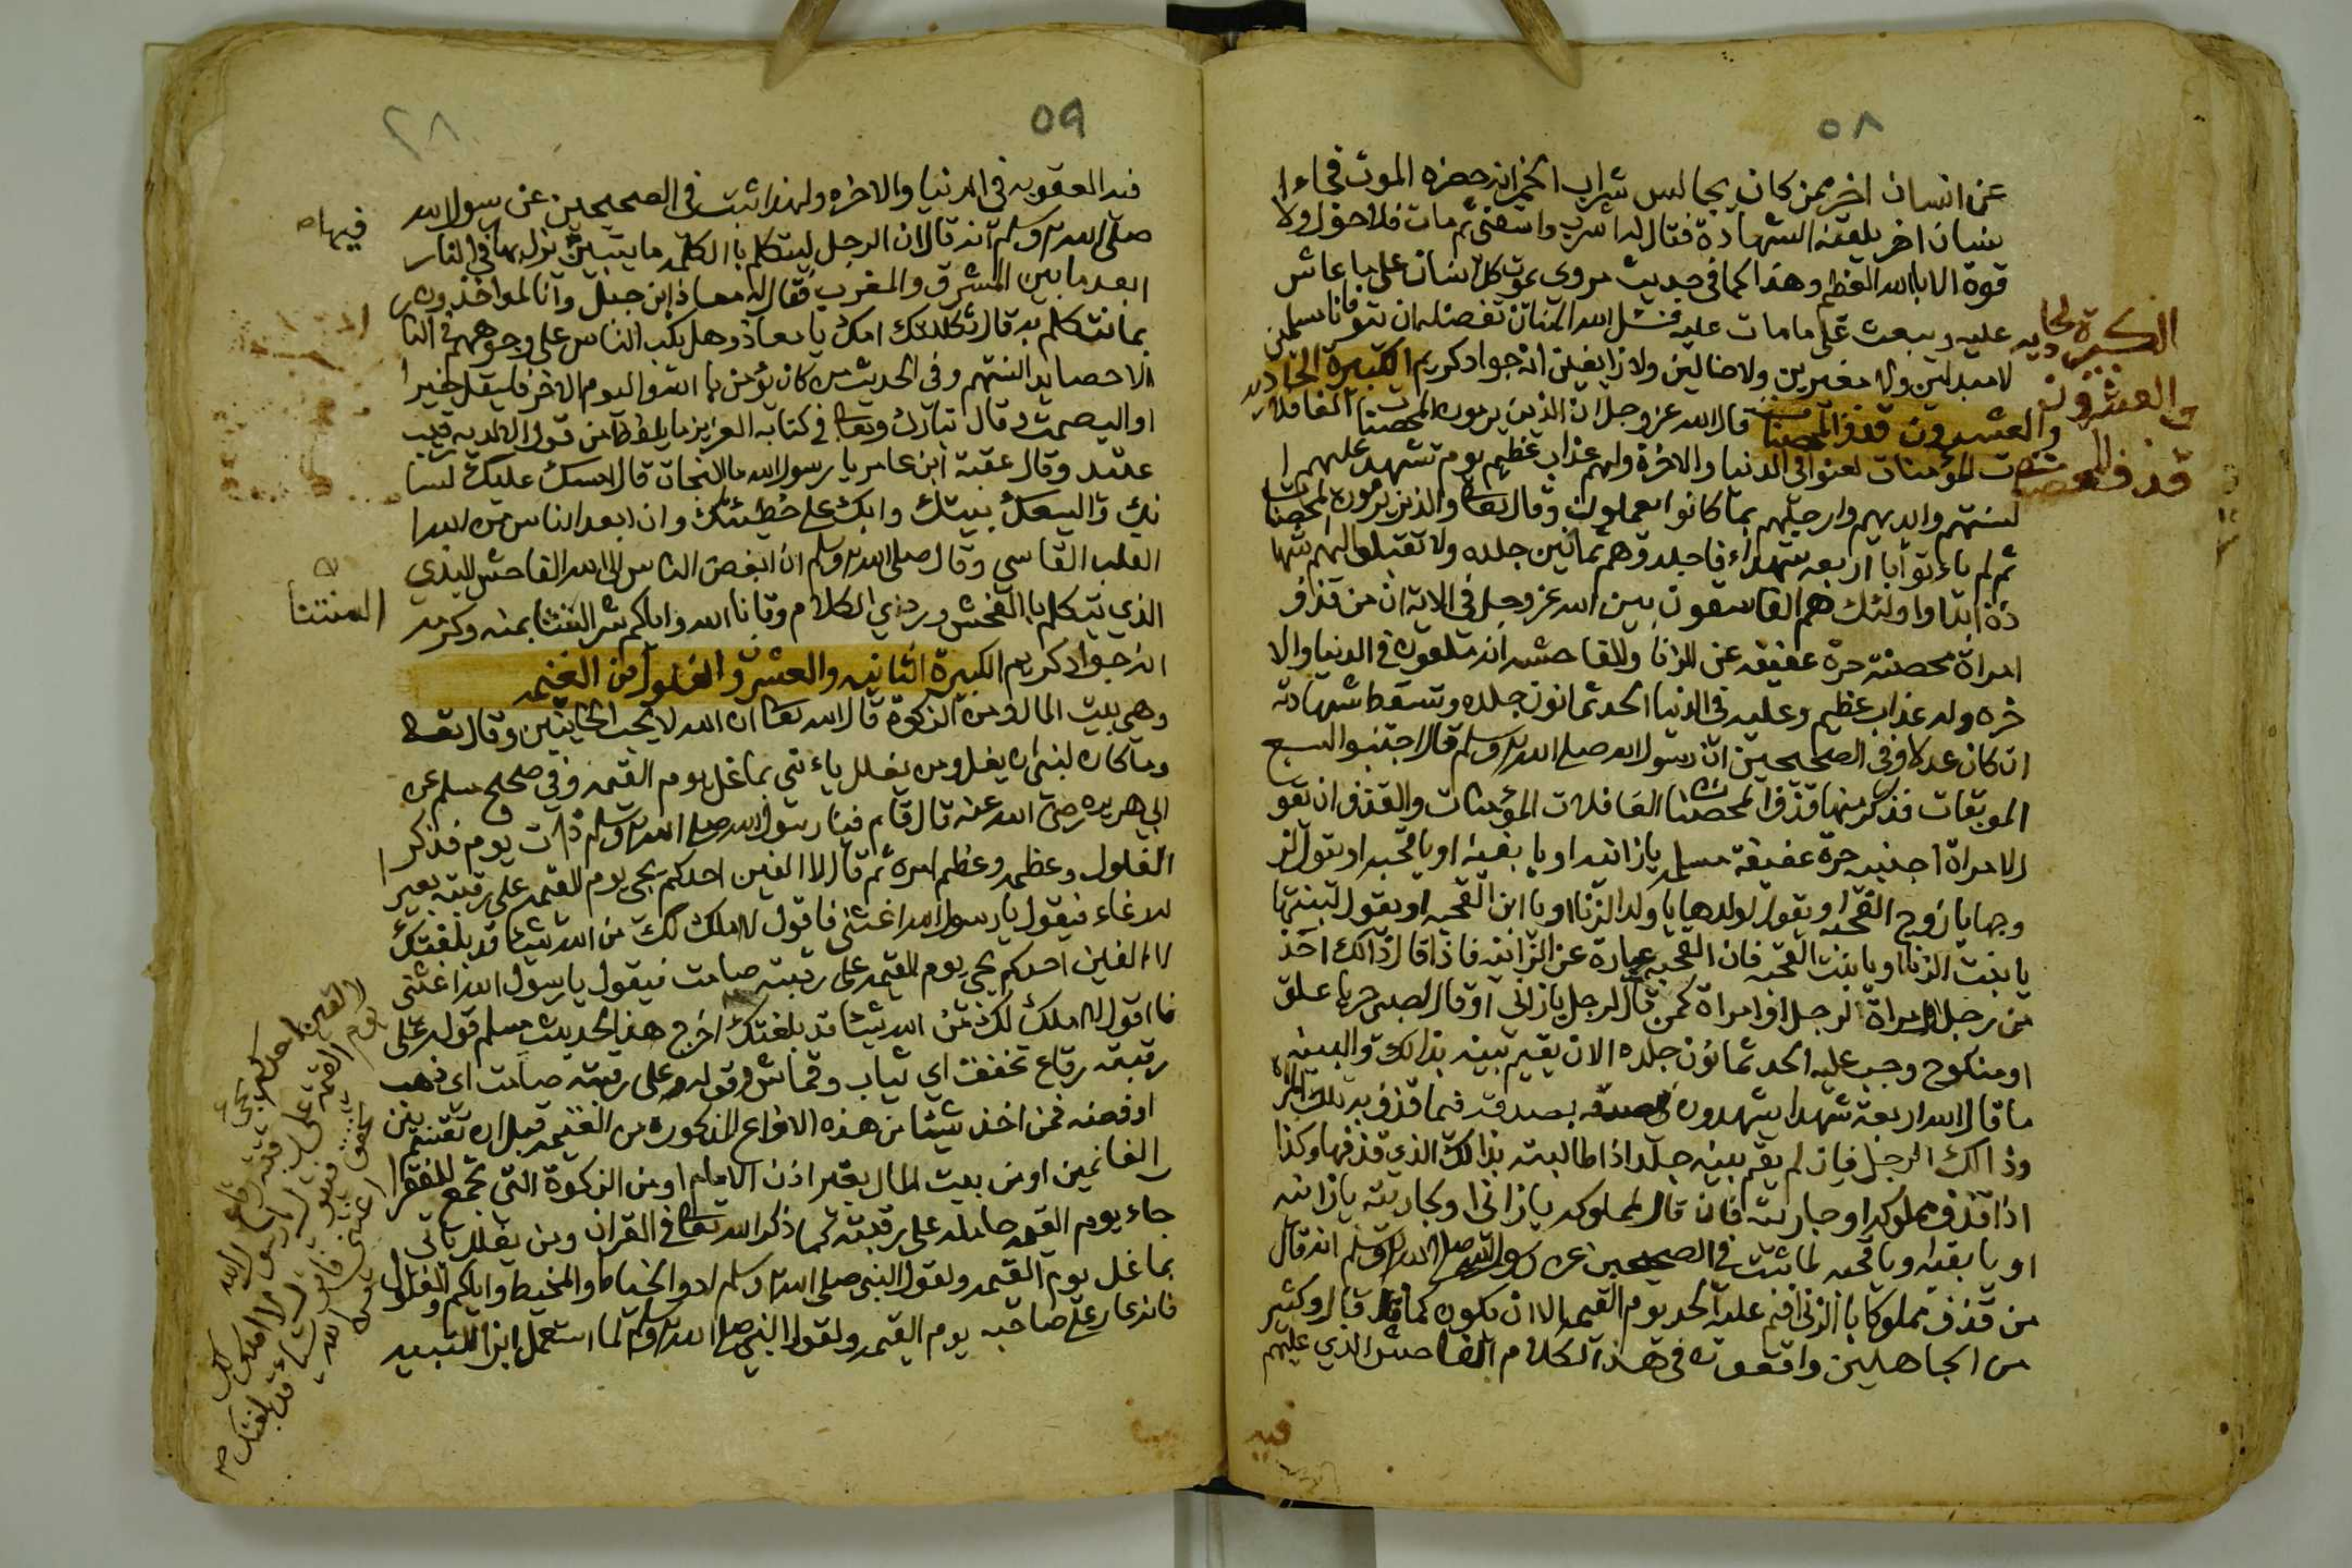 ٥٨
عن انسان اخر ممن كان يجالس شراب الخمر انه حضره الموت فجاءا
نسان اخر يلقنه الشهادة فقال له اشرب واسقني ثم مات فلا حول ولا
قوة الا بالله العظيم وهذا كما في حديث مروي يموت كل انسان على ما عاش
عليه ويبعث على ما مات عليه فنسئل الله المنان بفضله ان يتوفانا مسلمين
لا مبدلين ولا مغيرين ولا ضالين ولا زايغين انه جواد كريم الكبيرة الحاديه
والعشرون قذف المحصنات قال الله عز وجل ان الذين يرمون المحصنات الغافلا
ت المؤمنات لعنوا في الدنيا والاخرة ولهم عذاب عظيم يوم تشهد عليهم ا
لسنتهم وايديهم وارجلهم بما كانوا يعملون وقال تعالى والذين يرمون المحصنات
ثم لم ياءتوا بأربعه شهداء فاجلدوهم ثمانين جلده ولا تقبلوا لهم شها
دة ابدا واولئك هم الفاسقون بين الله عز وجل في الاية ان من قذف
امراة محصنة حرة عفيفه عن الزنا والفاحشه انه ملعون في الدنيا والا
خره وله عذاب عظيم وعليه في الدنيا الحد ثمانون جلده وتسقط شهادته
ان كان عدلا وفي الصحيحين ان رسول الله صلى الله عليه وسلم قال اجتنبوا السبع
الموبقات فذكر منها قذف المحصنات الغافلات المؤمنات والقذف ان يقو
ل لامراة اجنبيه حرة عفيفة مسلمه يا زانيه او يا بغيه او يا قحبه او يقول لز
وجها يا زوج القحبه او يقول لولدها يا ولد الزنا او يا ابن القحبه او يقول لبنتها
يا بنت الزنا او يا بنت القحبه فان القحبه عبارة عن الزانيه فاذا قال ذالك احد
من رجل او امراة لرجل او امراة كمن قال لرجل يا زاني او قال لصبي حر يا علق
او منكوح وجب عليه الحد ثمانون جلده الا ان يقيم بينه بذالك والبينه
ما قال الله اربعة شهدا يشهدون بصدقه فيما قذف به تلك المراه
وذالك الرجل فان لم يقم بينه جلد اذا طالبته بذالك الذي قذفها وكذا
اذا قذف مملوكه او جاريته فان قال لمملوكه يا زاني او لجاريته يا زانيه
او يا بغيه او يا قحبه لما ثبت في الصحيحين عن رسول الله صلى الله عليه وسلم انه قال
من قذف مملوكا بالزنا اقيم عليه الحد يوم القيمه الا ان يكون كما قال وكثير
من الجاهلين واقعون في هذا الكلام الفاحش الذي عليهم
فيه
الكبيرة الحاديه
والعشرون
قذف المحصنات
٥٩
٢٨
فيه العقوبه في الدنيا والاخره ولهذا ثبت في الصحيحين عن رسول الله
صلى الله عليه وسلم انه قال ان الرجل ليتكلم باالكلمه ما يتبين يزل بها في النار
ابعد ما بين المشرق والمغرب فقال له معاذ ابن جبل وانا لمواخذون
بما نتكلم به قال ثكلتك امك يا معاذ وهل يكب الناس على وجوههم في النا
الا حصايد السنتهم وفي الحديث من كان يؤمن باالله واليوم الاخر فليقل خيرا
او اليصمت وقال تبارك وتعالى في كتابه العزيز ما يلفظ من قول الا لديه رقيب
عتيد وقال عقبة ابن عامر يا رسول الله ما النجات قال امسك عليك لسا
نك واليسعك بيتك وابك على خطيئتك وان ابعد الناس من الله ا
القلب القاسي وقال صلى الله عليه وسلم ان ابغض الناس الى الله الفاحش البذي
الذي يتكلم باالفحش وردي الكلام وقانا الله واياكم شر السنتنا بمنه وكرمه
انه جواد كريم الكبيرة الثانيه والعشرو الغلول من الغنيمه
وهي بيت المال ومن الزكوة قال الله تعالى ان الله لا يحب الخاينين وقال تعالى
وما كان لنبي ان يغل ومن يغلل ياءتي بما غل يوم القيمه وفي صحيح مسلم عن
ابي هريره رضي الله عنه قال قام فينا رسول الله صلى الله عليه وسلم ذات يوم فذكر
الغلول وعظمه وعظم امره ثم قال لا الفين احدكم يجي يوم القيمه على رقبته بعير
له رغاء فيقول يا رسول الله اغثني فاقول لا املك لك من الله شيئا قد بلغتك
لا الفين احدكم يجي يوم القيمه على رقبته صامت فيقول يا رسول الله اغثني
فااقول لا املك لك من الله شيئا قد بلغتك اخرج هذا الحديث مسلم قوله على
رقبته رقاع تخفق اي ثياب وقماش وقوله على رقبته صامت اي ذهب
او فضه فمن اخذ شيئا من هذه الانواع المذكوره من الغنيمه قبل ان تقتسم بين
الغانمين او من بيت المال بغير اذن الامام او من الزكوة التي تجمع للفقرا
جاء يوم القيمه حامله على رقبته كما ذكر الله تعالى في القران ومن يغلل ياتي
بما غل يوم القيمه ولقول النبي صلى الله عليه وسلم ادو الخياط والمخيط واياكم والغلول
فانه عار على صاحبه يوم القيمه ولقول النبي صلى الله عليه وسلم لما استعمل ابن اللتبيه
فيها
السنتنا
لا الفين احدكم يجي
يوم القيمه على رقبته رقاع
تخفق فيقول يا رسول الله
اغثني فاقول لا املك لك
من الله شياء قد بلغتك